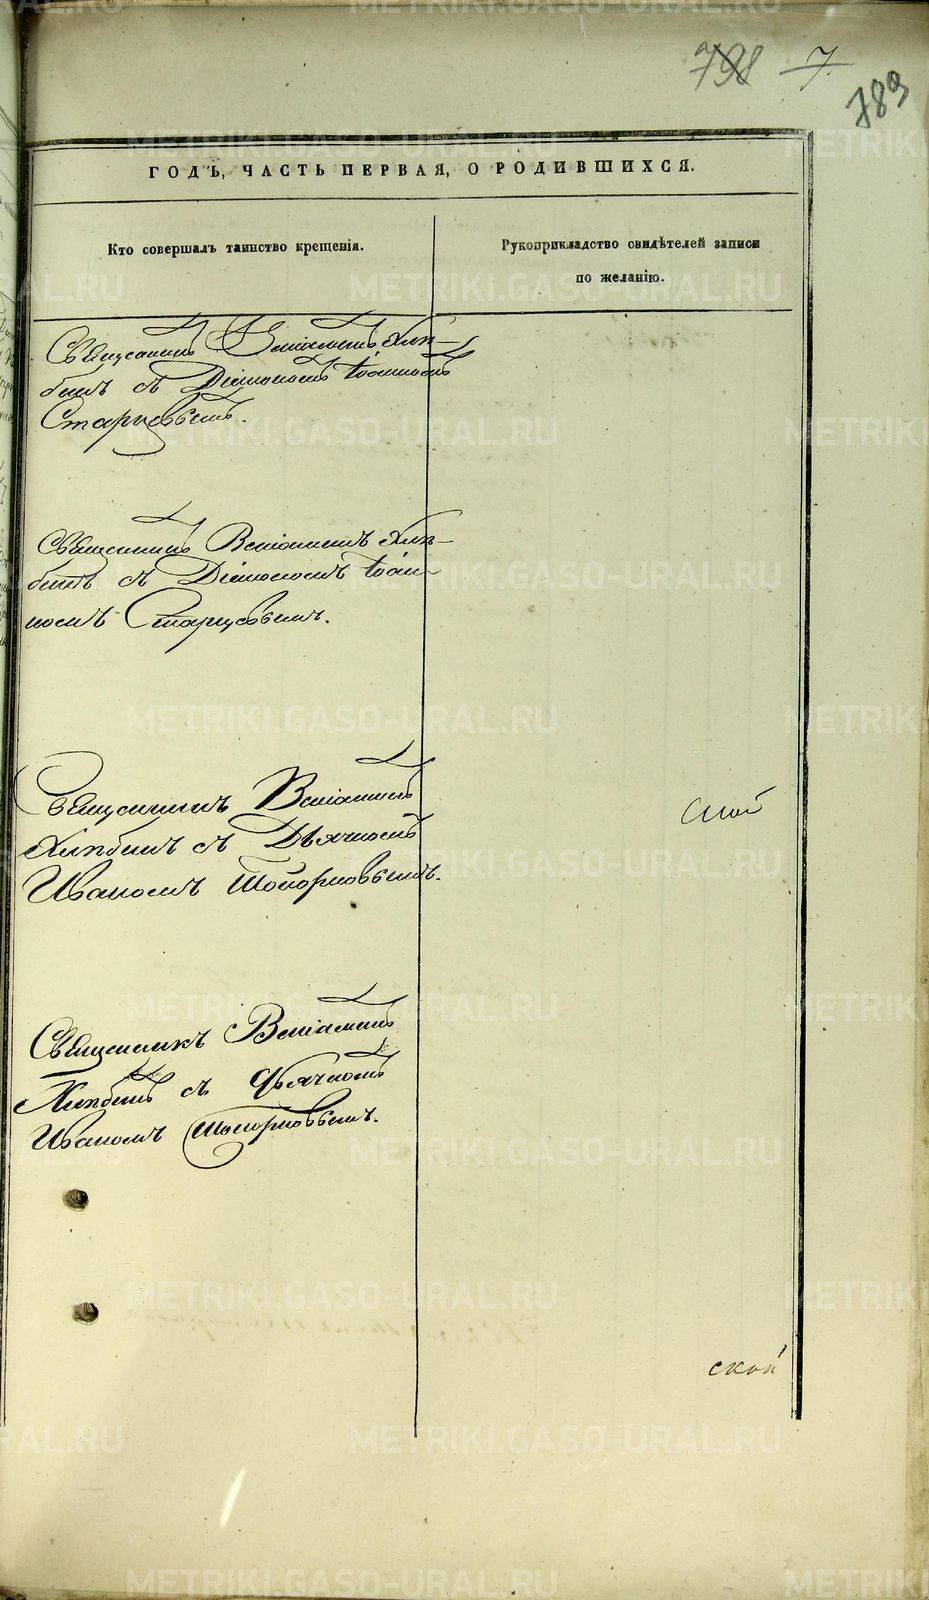 798 7.
789
ГОДЪ, ЧАСТЬ ПЕРВАЯ, О РОДИВШИХСЯ.
Кто совершалъ таинство крещенія.
Рукоприкладство свидѣтелей записи
по желанію.
Священникъ Веніаминъ Хлѣ-
бинъ съ Діакономъ Іоанномъ
Старцевымъ.
Священникъ Веніаминъ Хлѣ-
бинъ съ Діакономъ Іоан-
номъ Старцевымъ.
Священникъ Веніаминъ
Хлѣбинъ съ Дьячкомъ
Иваномъ Топорковымъ.
ской
Священникъ Веніаминъ
Хлѣбинъ съ Дьячкомъ
Иваномъ Топорковымъ.
ской
METRIKI.GASO-URAL.RU